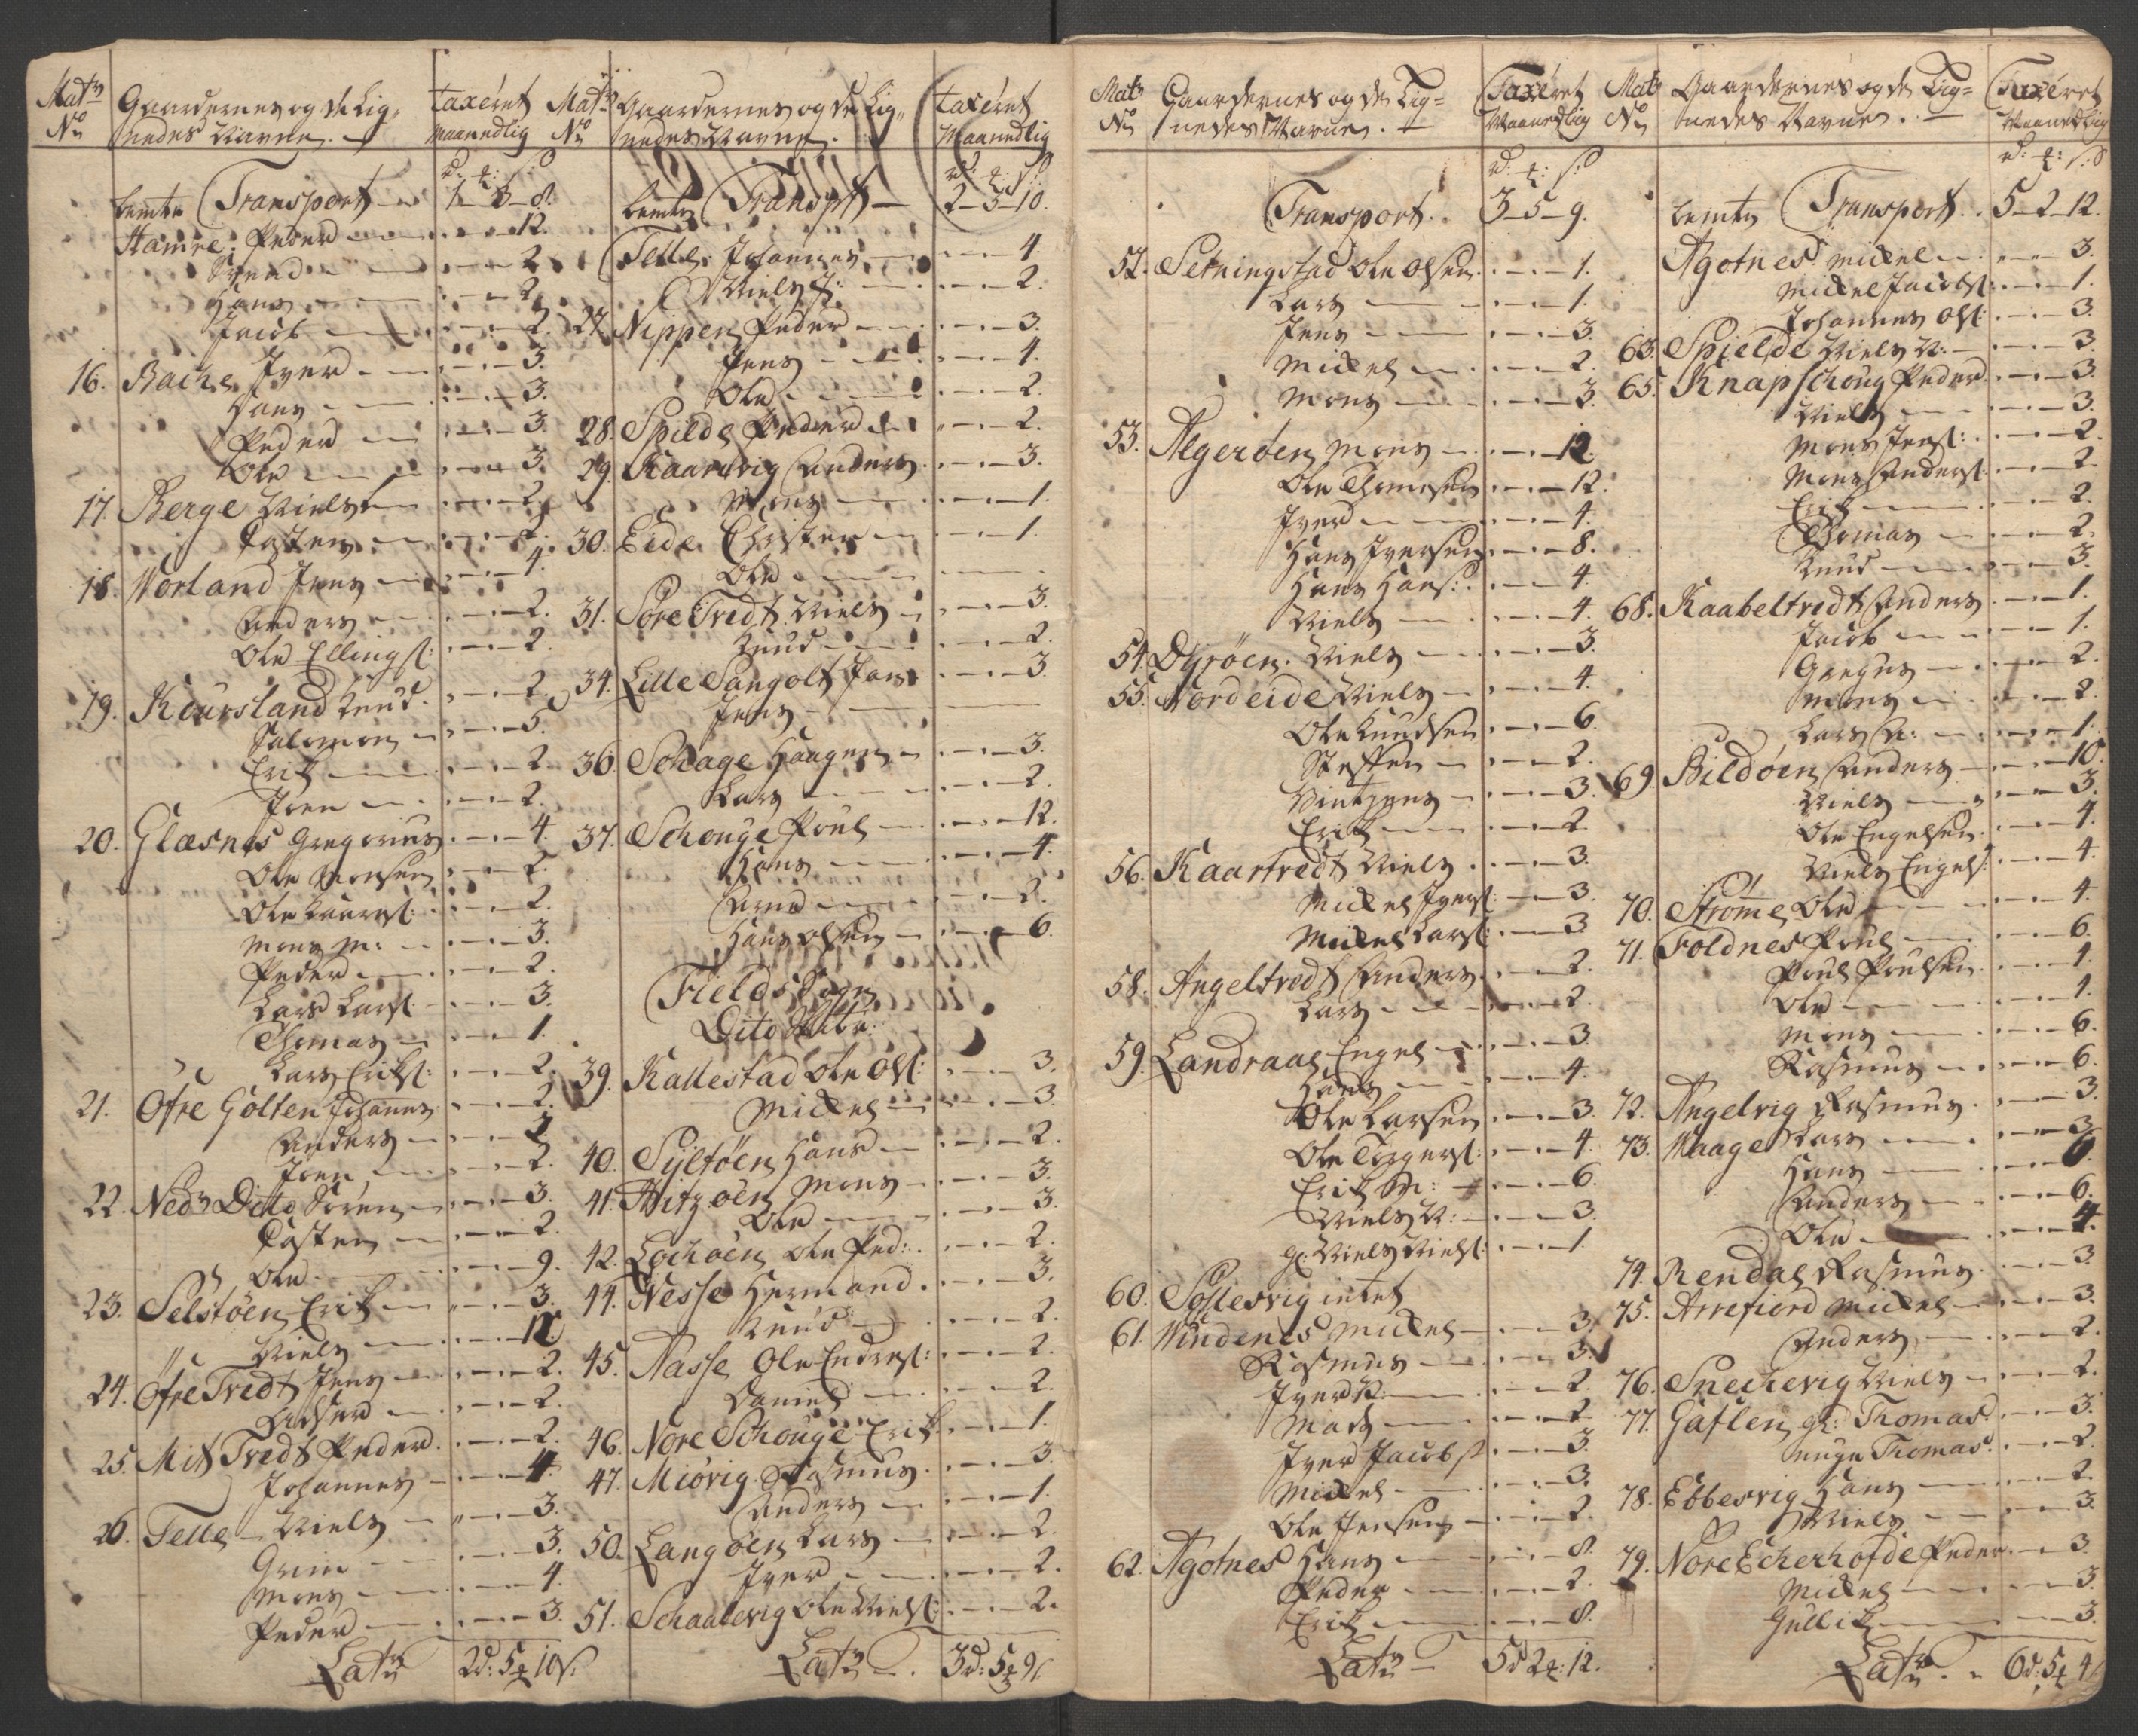 Matr No Gaardernes og de Lig-nedes Navne. taxeret Maanedlig
d: t: s
Transport 1-3-8.
Hamre. Peder 12.
Svend 2.
Hans 2.
Jacob 2.
16. Bache Iver 3.
Hans 3.
Peder 3.
Ole 3.
17. Berge Niels 2.
Casten 2.
18. Worland Jens 4.
Anders 2.
Ole Ellings: 2.
19. Koursland Knud 2.
Salomon 5.
Erik 2.
Joen 2.
20. Glæsnes Gregorius 4.
Ole Monsen 2.
Ole Laars: 2.
Mons M: 3.
Peder 2.
Lars Lars: 3.
Thomas 1.
Lars Eriks: 2.
21. Öfre Golten Johannes 2.
Anders
Joen 2.
22. Nedr Ditto Sören 3.
Casten 2.
Ole 9.
23. Selstöen Erik 3.
Niels 12.
24. Öfre Tredt Jens 2.
2.
25. Mit Tredt Peder 2.
Johannes 4.
26. Telle Niels 3.
Grim 3.
Mons 4.
Peder 3.
Latr 2d: 5t 10s.
Matr No Gaardernes og de Lig-nedes Navne. taxeret Maanedlig
d: t: s
Transpt 2-5-10.
Telle. Johannes 4.
Niels J: 2.
27. Nippen Peder 3.
Jens 4.
Ole 2.
28. Spilde Peder 2.
29. Kaarwig Anders 3.
Mons 1.
30. Eide Christen 1.
Ole
31. Söre Tredt Niels 3.
Knud 2.
34. Lille Sangolt Jan 3.
Jens
36. Schage Haagen 3.
Lars 2.
37. Schouge Poul 12.
Hans 4.
Arne 2.
Hans Olsen 6.
Fields Sogn
Dito
39. Kallestad Ole Ols: 3.
Mickel 3.
40. Syltöen Hans 2.
41. Hitzöen Mons 3.
Ole 3.
42. Lochöen Ole Ped: 2.
44. Nesse Hermand 3.
Knud 2.
45. Nasse Ole Endres: 2.
Daniel 2.
46. Nore Schouge Erik 1.
47. Miövig. Rasmus 3.
Anders 1.
50. Langöen Lars 2.
Iver 2.
51. Schaalevig Ole Niels: 2.
Latr 3d: 5t 9s
Matr No Gaardernes og de Lig=nedes Navne. Taxeret Maanedlig
d: t: s
Transport 3-5-9.
52. Sekningstad Ole Olsen 1.
Lars 1.
Jens 3.
Mickel 2.
Mons 3.
53. Algeröen Mons 12.
Ole Thomesen 12.
Iver 4.
Hans Iversen 8.
Hans Hans: 4.
Niels 4.
54. Dyröen. Niels 3.
55. Nordeide Niels 4.
Ole Knudsen 6.
Steffen 2.
Vintzens 3.
Erik 2.
56. Kaartredt Niels 3.
Mickel Ivers: 3.
Mickel Lars: 3
58. Angeltredt Anders 2.
Lars 2.
59. Landraas Engel 3.
Hans 4.
Ole Larsen 3.
Ole Torgers: 4.
Erik M: 6.
Niels N: 3.
gl: Niels Niels: 1.
60. Sollesvig intet
61. Windenes Mickel 3.
Rasmus 3.
Iver 2.
Mads 2
Iver Jacobs 3.
Mickel 3.
Ole Jensen 2.
62. Agotnes Hans 8.
Peder 2.
Erik 8.
Latr 5d 2t: 12.
Matr No Gaardernes og de Lig=nedes Navne. Taxeret Maanedlig
d: t: s
Transport 5-2-12.
Agotnes Mickel 3.
Mickel Jacobs: 1.
Johannes Ols: 3.
63. Spielde Niels N: 3.
65. Knapschoug Peder 3.
Niels 3.
Mons Jens: 2.
Mons Anders: 2.
Erik 2.
Thomas 2.
Knud 3.
68. Kaabeltredt Anders 1.
Jacob 1.
Gregus 2.
Mons 2.
Lars 1.
69. Bildöen Anders 10.
Niels 3.
Ole Engelsen 4.
Niels Engels: 4.
70. Ströme Ole 4.
71. Foldnes Poul 6.
Poul Poulsen 4.
Ole 4.
Mons 6.
Rasmus 6.
72. Angelvig Rasmus 3.
73. Waage Lars 3
Hans 6
Anders 6.
Ole 4.
74. Rendal Rasmus 3.
75. Arrefiord Mickel 3.
Anders 2.
76. Snechevig Niels 2.
77. Gaflen gl: Thomas 3.
unge Thomas 2.
78. Ebbesvig Hans 2.
Niels 3.
79. Nore Echerhofde Peder 3.
Mickel 3.
Gullik 3.
Latr 6d: 5t 4